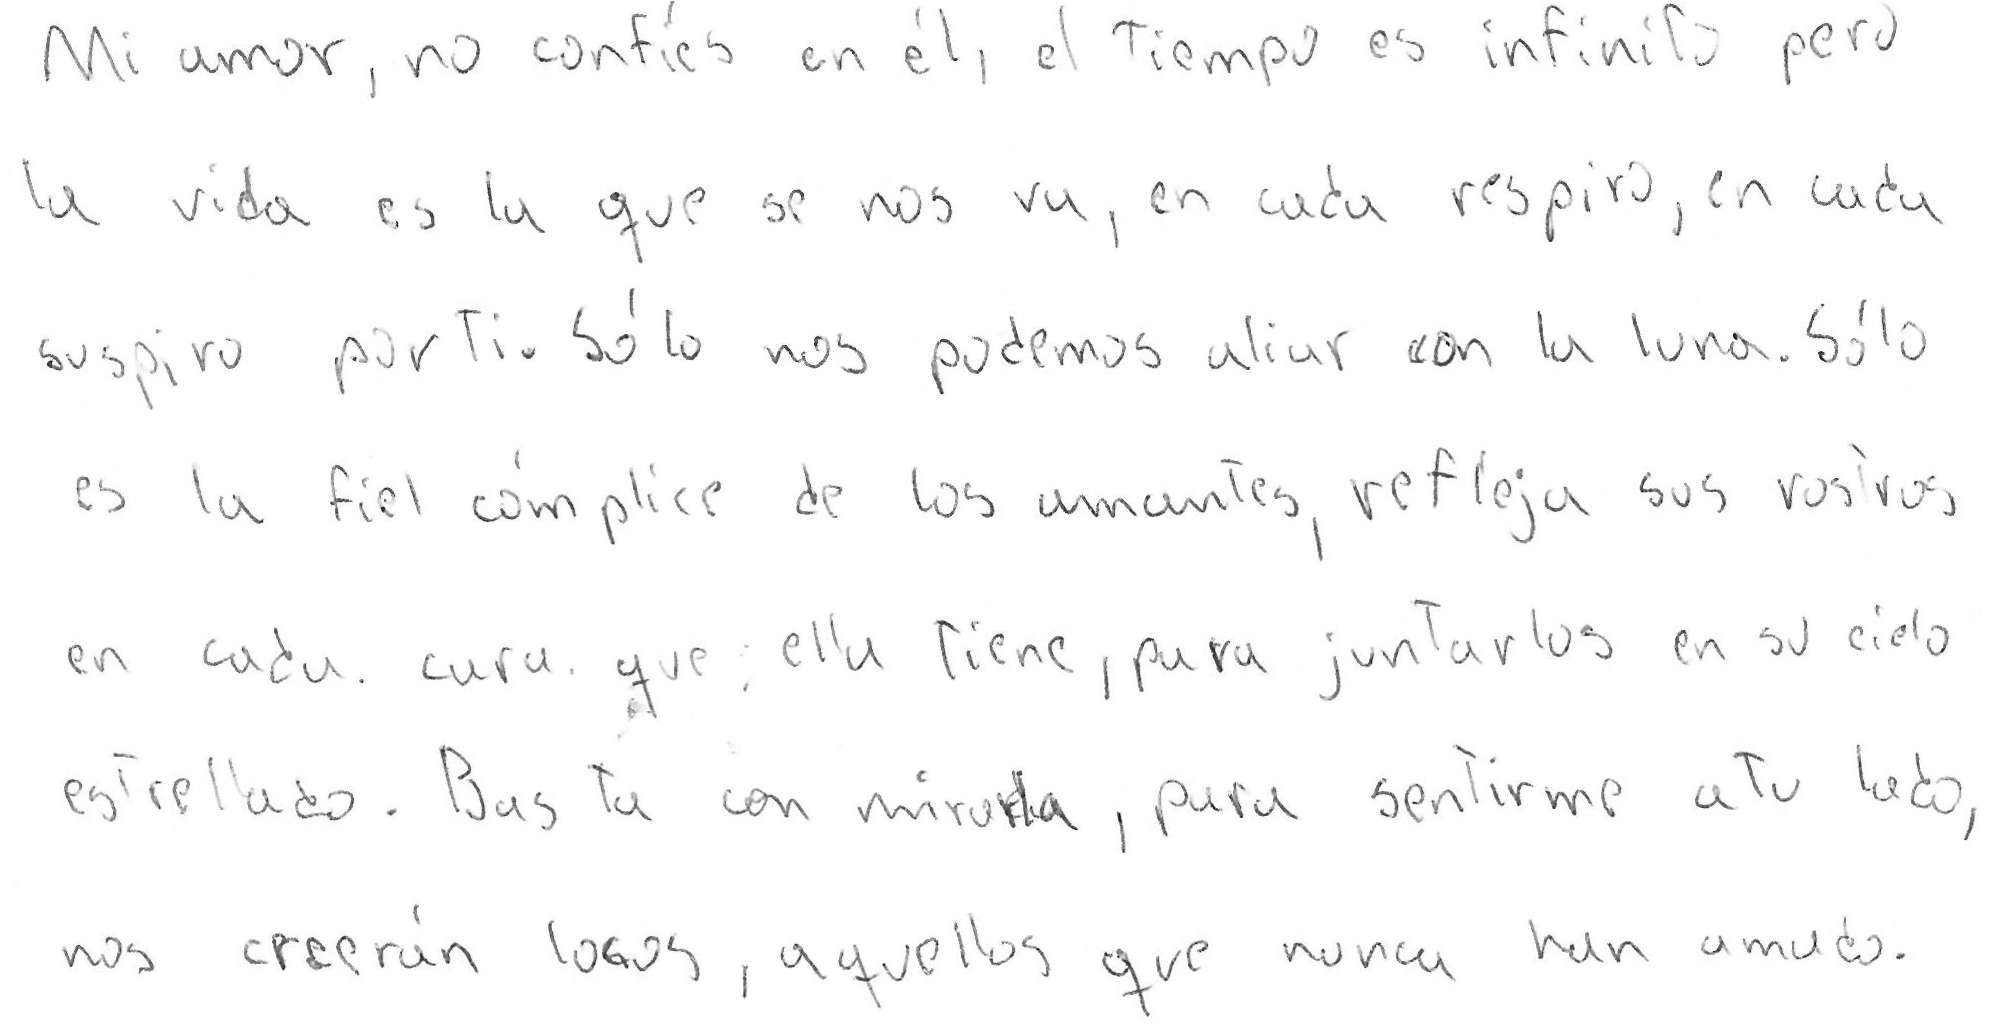 Mi amor, no confíes en él, el tiempo es infinito pero
la vida es la que se nos va, en cada respiro, en cada
suspiro por ti. Sólo nos podemos aliar con la luna. Sólo
es la fiel cómplice de los amantes, refleja sus rostros
en cada cara que ella tiene, para juntarlos en su cielo
estrellado. Basta con mirarla, para sentirme a tu lado,
nos creerán locos, aquellos que nunca han amado.